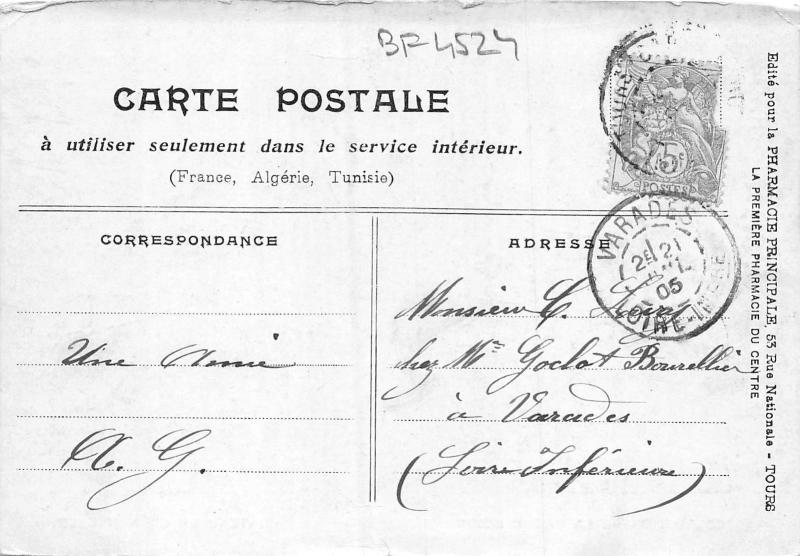 BF 4524
CARTE POSTALE
à utiliser seulement dans le service intérieur.
(France, Algérie, Tunisie)
CORRESPONDANCE
Une Amie
A. G.
ADRESSE
Monsieur C.
chez Mr Goclot Bourellier
à Varades
(Loire Inférieure)
5c
POSTES
TOURS
VARADES
2E 21
05
LOIRE-INFRE
Edité pour la PHARMACIE PRINCIPALE, 53 Rue Nationale - TOURS
LA PREMIÈRE PHARMACIE DU CENTRE